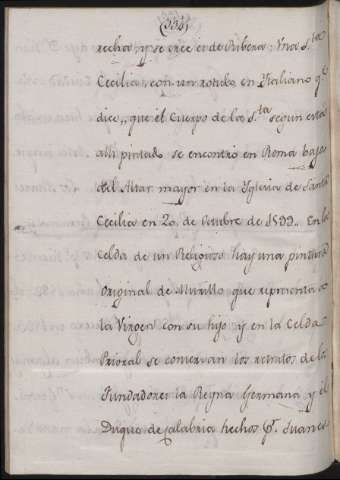 (334)
recha, y se cree es de Ribera: Una S.ta
Cecilia, con un rotulo en Ytaliano q.e
dice,, que el Cuerpo de la S.ta segun esta
alli pintado se encontró en Roma bajo
del Altar mayor en la Yglesia de Santa
Cecilia en 20 de Octubre de 1599. En la
Celda de un Religioso hay una pintura
original de Murillo que representa a
la Virgen con su hijo y en la Celda
Prioral se conservan los retratos de los
Fundadores la Reyna Germana y el
Duque de Calabria hechos p.r Juanes